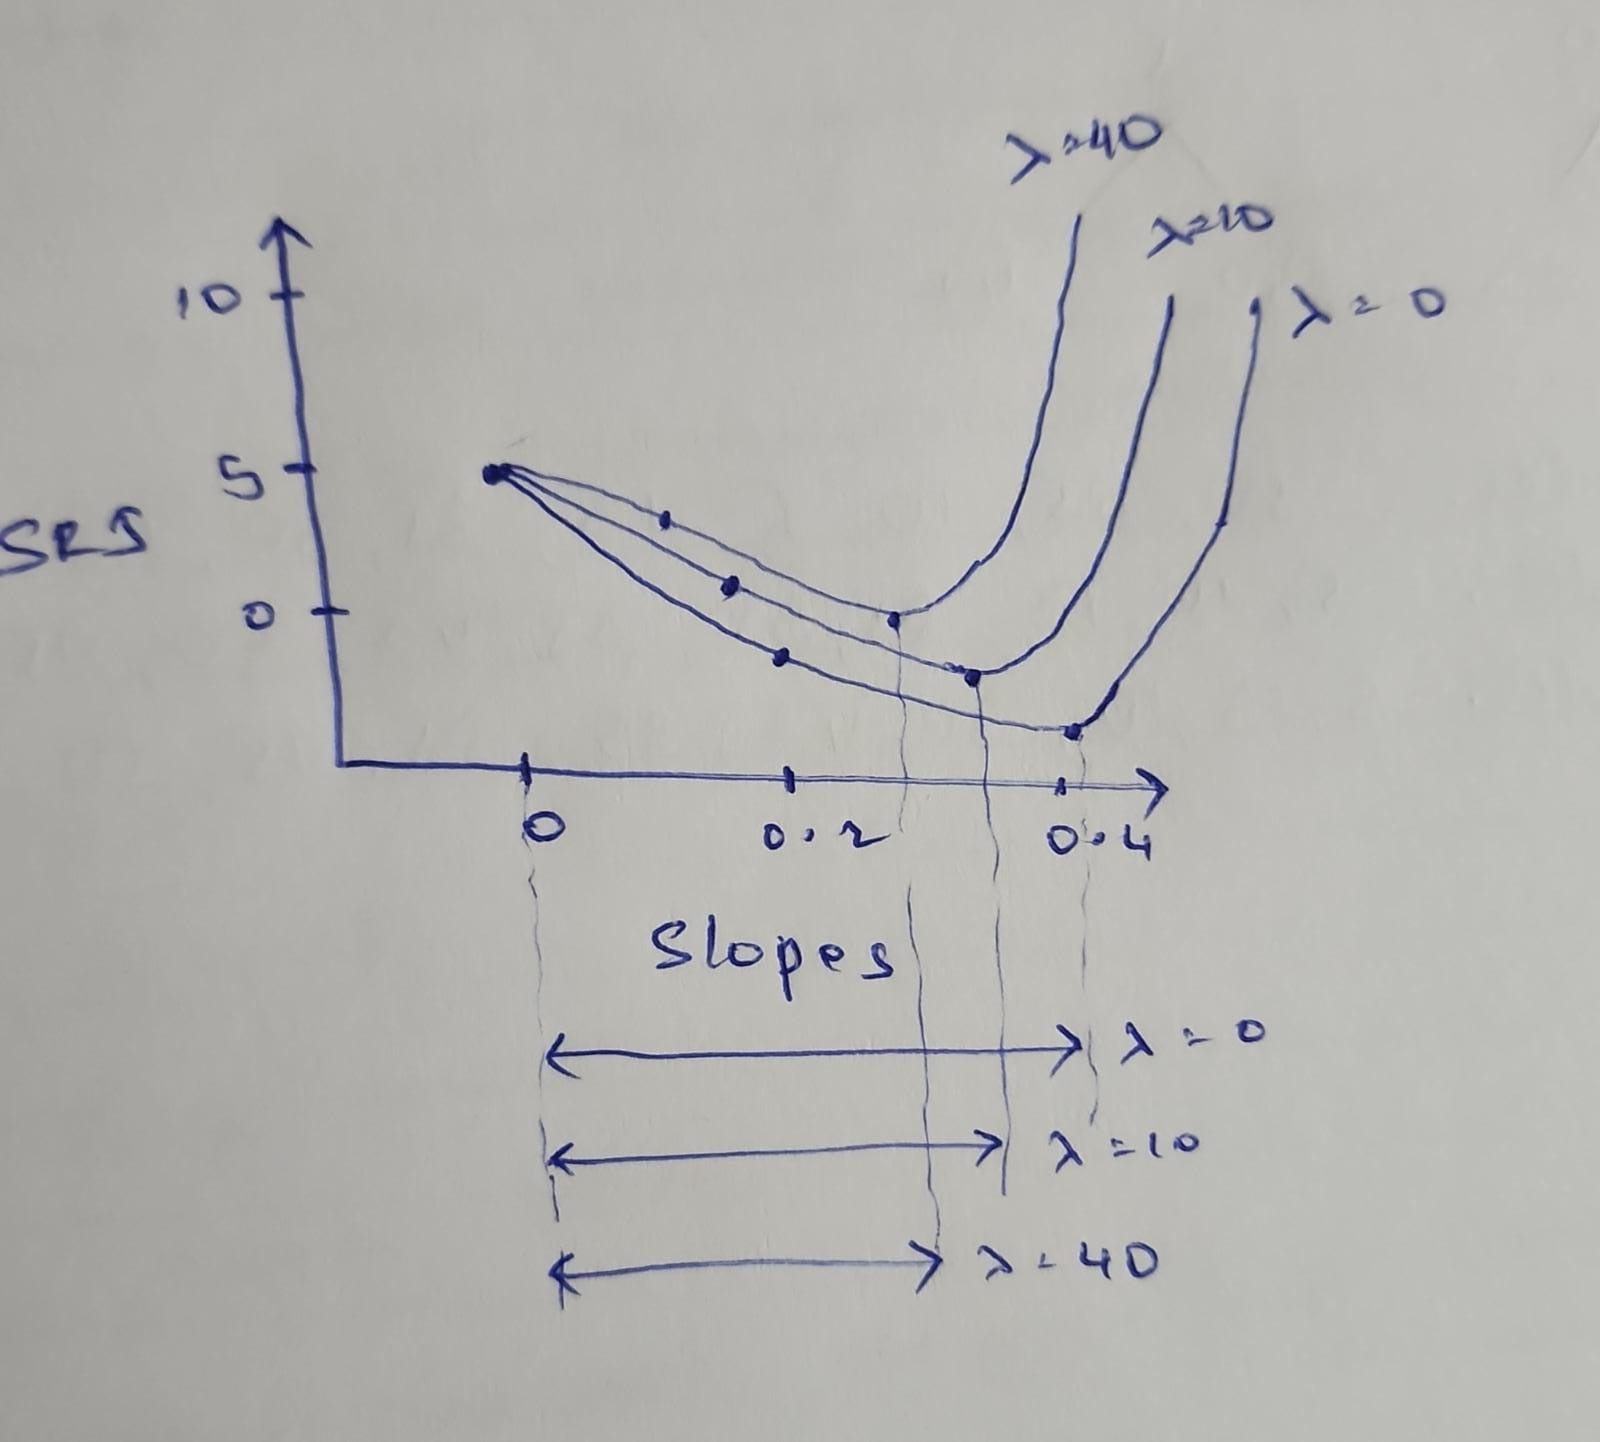 λ=40
λ=10
λ = 0
10
5
0
0 0.2 0.4
Slopes
λ = 0
λ = 10
λ = 40